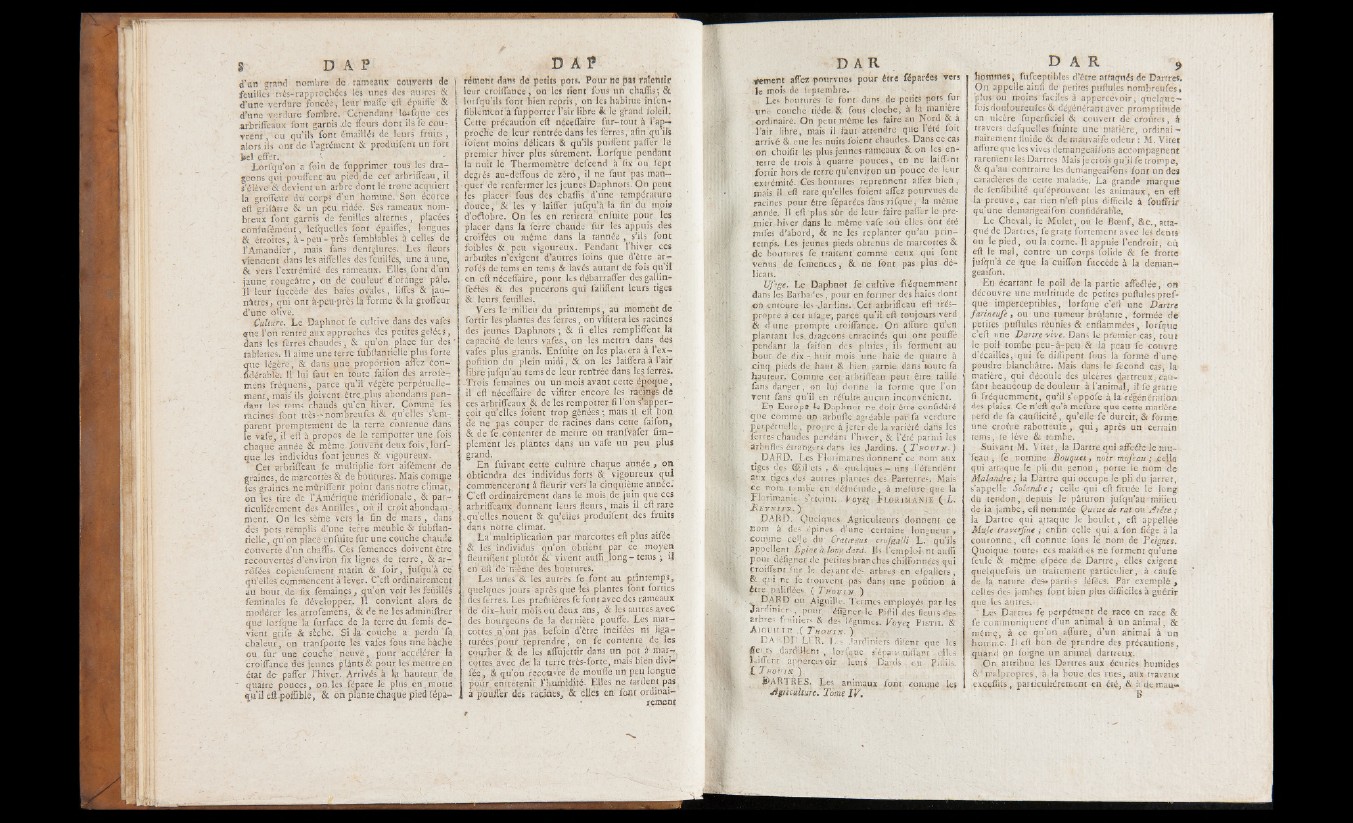 8 D A P
d'un grand nombre de rameaux couverts de
feuilles très-rapprochées les unes des autres &
d'une verdure foncée, leur masse est épaisse &
d'une verdure sombre. Cependant lorsque ces
arbrisseaux sont garnis de fleurs dont ils se cou-
vrent, ou qu'ils sont émaillés de leurs fruits,
alors ils ont de l'agrément & produisent un fort
bel effet.
Lorsqu'on a soin de supprimer tous les dra-
geons qui poussent au pied de cet arbrisseau, il
s'élève & devient un arbre dont le tronc acquiert
la grosseur du corps d'un homme. Son écorce
est grisâtre & un peu ridée. Ses rameaux nom-
breux sont garnis de feuilles alternes, placées
confusément, lesquelles sont épaisses, longues
& étroites, à-peu-près semblables à celles de
l'Amandier, mais sans dentelures. Les fleurs
viennent dans les aisselles des feuilles, une à une,
& vers l'extrémité des rameaux. Elles sont d'un
jaune rougeâtre, ou de couleur d'orange pâle.
Il leur succède des baies ovales, lisses & jau-
nâtres, qui ont à-peu-près la forme & la grosseur
d'une olive.
Culture. Le Daphnot se cultive dans des vases
que l'on rentre aux approches des petites gelées,
dans les serres chaudes, & qu'on place sur des
tablettes. Il aime une terre substantielle plus forte
que légère, & dans une proportion assez con-
sidérable. Il lui faut en toute saison des arrose-
mens fréquens, parce qu'il végète perpétuelle-
ment, mais ils doivent être plus abondans pen-
dant les tems chauds qu'en hiver. Comme les
racines sont très-nombreuses & qu'elles s'em-
parent promptement de la terre contenue dans
le vase, il est à propos de le rempotter une fois
chaque année & même souvent deux fois, lors-
que les individus sont jeunes & vigoureux.
Cet arbrisseau se multiplie fort aisément de
graines, de marcottes & de boutures. Mais comme
les graines ne mûrissent point dans notre climat,
on les tire de l'Amérique méridionale, & par-
ticulièrement des Antilles, où il croît abondam-
ment. On les sème vers la fin de mars, dans
des pots remplis d'une terre meuble & substan-
tielle, qu'on place ensuite sur une couche chaude
couverte d'un chassis. Ces semences doivent être
recouvertes d'environ six lignes de terre, & ar-
rosées copieusement matin & soir, jusqu'à ce
qu'elles commencent à lever. C'est ordinairement
au bout de six semaines, qu'on voit les feuilles
séminales se développer. Il convient alors de
modérer les arrosemens, & de ne les administrer
que lorsque la surface de la terre du semis de-
vient grise & sèche. Si la couche a perdu sa
chaleur, on transporte les vases sous une bâche
ou sur une couche neuve, pour accélérer la
croissance des jeunes plants & pour les mettre en
état de passer l'hiver. Arrivés à la hauteur de
quatre pouces, on les sépare le plus en motte
qu'il est possible, & on plante chaque pied sépa-
D A P
rément dans de petits pots. Pour ne pas ralentir
leur croissance, on les tient sous un chassis; &
lorsqu'ils sont bien repris, on les habitue insen-
siblement à supporter l'air libre & le grand soleil.
Cette précaution est nécessaire sur-tout à l'ap-
proche de leur rentrée dans les serres, afin qu'ils
soient moins délicats & qu'ils puissent passer le
premier hiver plus sûrement. Lorsque pendant
la nuit le Thermomètre descend à six ou sept
degrés au-dessous de zéro, il ne faut pas man-
quer de renfermer les jeunes Daphnots. On peut
les placer sous des chassis d'une température
douce, & les y laisser jusqu'à la fin du mois
d'octobre. On les en retirera ensuite pour les
placer dans la serre chaude sur les appuis des
croisées ou même dans la tannée, s'ils sont
foibles & peu vigoureux. Pendant l'hiver ces
arbustes n'exigent d'autres soins que d'être ar-
rosés de tems en tems & lavés autant de fois qu'il
en est nécessaire, pour les débarrasser des gallin-
sectes & des pucerons qui salissent leurs tiges
& leurs feuilles.
Vers le milieu du printemps, au moment de
sortir les plantes des serres, on visitera les racines
des jeunes Daphnots; & si elles remplissent la
capacité de leurs vases, on les mettra dans des
vases plus grands. Ensuite on les placera à l'ex-
position du plein midi, & on les laissera à l'air
libre jusqu'au tems de leur rentrée dans les serres.
Trois semaines ou un mois avant cette époque,
il est nécessaire de visiter encore les racines de
ces arbrisseaux & de les rempotter si l'on s'apper-
çoit qu'elles soient trop gênées; mais il est bon
de ne pas couper de racines dans cette saison,
& de se contenter de mettre ou transvaser sim-
plement les plantes dans un vase un peu plus
grand.
En suivant cette culture chaque année, on
obtiendra des individus forts & vigoureux qui
commenceront à fleurir vers la cinquième année.
C'est ordinairement dans le mois de juin que ces
arbrisseaux donnent leurs fleurs, mais il est rare
qu'elles nouent & qu'elles produisent des fruits
dans notre climat.
La multiplication par marcottes est plus aisée
& les individus qu'on obtient par ce moyen
fleurissent plutôt & vivent aussi long-tems; il
en est de même des boutures.
Les unes & les autres se font au printemps,
quelques jours après que les plantes sont sorties
des serres. Les premières se font avec des rameaux
de dix-huit mois ou deux ans, & les autres avec
des bourgeons de la dernière pousse. Les mar-
cottes n'ont pas besoin d'être incisées ni liga-
turées pour reprendre, on se contente de les
courber & de les assujettir dans un pot à mar-
cottes avec de la terre très-forte, mais bien divi-
sée, & qu'on recouvre de mousse un peu longue
pour entretenir l'humidité. Elles ne tardent pas
à pousser des racines, & elles en sont ordinai-
rement
D A R
rement assez pourvues pour être séparées vers
le mois de septembre.
Les boutures se font dans de petits pots sur
une couche tiède & sous cloche, à la manière
ordinaire. On peut même les faire au Nord & à
l'air libre, mais il faut attendre que l'été soit
arrivé & que les nuits soient chaudes. Dans ce cas
on choisit les plus jeunes rameaux & on les en-
terre de trois à quatre pouces, en ne laissant
sortir hors de terre qu'environ un pouce de leur
extrémité. Ces boutures reprennent assez bien,
mais il est rare qu'elles soient assez pourvues de
racines pour être séparées sans risque, la même
année. Il est plus sûr de leur faire passer le pre-
mier hiver dans le même vase où elles ont été
mises d'abord, & ne les replanter qu'au prin-
temps. Les jeunes pieds obtenus de marcottes &
de boutures se traitent comme ceux qui sont
venus de semences, & ne sont pas plus dé-
licats.
Usage. Le Daphnot se cultive fréquemment
dans les Barbades, pour en former des haies dont
on entoure les Jardins. Cet arbrisseau est très-
propre à cet usage, parce qu'il est toujours verd
& d'une prompte croissance. On assure qu'en
plantant les drageons enracinés qui ont poussé
pendant la saison des pluies, ils forment au
bout de dix-huit mois une haie de quatre à
cinq pieds de haut & bien garnie dans toute sa
hauteur. Comme cet arbrisseau peut être taillé
sans danger, on lui donne la forme que l'on
veut sans qu'il en résulte aucun inconvénient.
En Europe le Daphnot ne doit être considéré
que comme un arbuste agréable par sa verdure
perpétuelle, propre à jeter de la variété dans les
serres chaudes pendant l'hiver, & l'été parmi les
arbustes étrangers dans les Jardins. ( THOUIN. )
DARD. Les Florimanes donnent ce nom aux
tiges des Œillets, & quelques-uns l'étendent
aux tiges des autres plantes des Parterres. Mais
ce nom tombe en désuétude, à mesure que la
Florimanie s'éteint. Voyez FLORIMANIE ( L.
REYNIER. )
DARD. Quelques Agriculteurs donnent ce
nom à des épines d'une certaine longueur,
comme celle du Crataegus crusgalli L. qu'ils
appellent Epine à long dard. Ils l'emploient aussi
pour désigner de petites branches chiffonnées qui
croissent sur le devant des arbres en espaliers,
& qui ne se trouvent pas dans une position à
être palissées. ( THOUIN. )
DARD ou Aiguille. Termes employés par les
Jardiniers, pour désigner le Pistil des fleurs des
arbres fruitiers & des légumes. Voyez PISTIL &
AIGUILLE. ( THOUIN. )
DARDILLER. Les Jardiniers disent que les
fleurs dardillent, lorsque s'épanouissant elles
laissent appercevoir leurs Dards ou Pistils.
( THOUIN. )
DARTRES. Les animaux sont comme les
Agriculture. Tome IV.
D A R 9
hommes, susceptibles d'être attaqués de Dartres.
On appelle ainsi de petites pustules nombreuses,
plus ou moins faciles à appercevoir, quelque-
fois douloureuses & dégénérant avec promptitude
en ulcère superficiel & couvert de croûtes, à
travers desquelles suinte une matière, ordinai-
nairement fluide & de mauvaise odeur: M. Vitet
assure que les vives demangeaisons accompagnent
rarement les Dartres. Mais je crois qu'il se trompe,
& qu'au contraire les demangeaisons sont on des
caractères de cette maladie. La grande marque
de sensibilité qu'éprouvent les animaux, en est
la preuve, car rien n'est plus difficile à souffrir
qu'une demangeaison considérable.
Le Cheval, le Mulet, ou le Bœuf, &c., atta-
qué de Dartres, se grate fortement avec les dents
ou le pied, ou la corne. Il appuie l'endroit, où
est le mal, contre un corps solide & se frotte
jusqu'à ce que la cuisson succède à la deman-
geaison.
En écartant le poil de la partie affectée, on
découvre une multitude de petites pustules pres-
que imperceptibles, lorsque c'est une Dartre
farineuse, ou une tumeur brûlante, formée de
petites pustules réunies & enflammées, lorsque
c'est une Dartre vive. Dans le premier cas, tout
le poil tombe peu-à-peu & la peau se couvre
d'écailles, qui se dissipent sous la forme d'une
poudre blanchâtre. Mais dans le second cas, la
matière, qui découle des ulcères dartreux, cau-
sant beaucoup de douleur à l'animal, il se gratte
si fréquemment, qu'il s'oppose à la régénération
des plaies. Ce n'est qu'à mesure que cette matière
perd de sa causticité, qu'elle se durcit, & forme
une croûte raboteuse, qui, après un certain
tems, se lève & tombe.
Suivant M. Vitet, la Dartre qui affecte le mu-
seau, se nomme Bouquet, noir museau; celle
qui attaque le pli du genou, porte le nom de
Malandre; la Dartre qui occupe le pli du jarret,
s'appelle Solandre; celle qui est située le long
du tendon, depuis le pâturon jusqu'au milieu
de la jambe, est nommée Queue de rat ou Arête;
la Dartre qui attaque le boulet, est appellée
Mule traversine; enfin celle qui a son siège à la
couronne, est connue sous le nom de Peignes.
Quoique toutes ces maladies ne forment qu'une
seule & même espèce de Dartre, elles exigent
quelquefois un traitement particulier, à cause
de la nature des parties lésées. Par exemple,
celles des jambes sont bien plus difficiles à guérir
que les autres.
Les Dartres se perpétuent de race en race &
se communiquent d'un animal à un animal, &
même, à ce qu'on assure, d'un animal à un
homme. Il est bon de prendre des précautions,
quand on soigne un animal dartreux.
On attribue les Dartres aux écuries humides
& malpropres, à la boue des rues, aux travaux
excessifs, particulièrement en été, & à de mau-
B